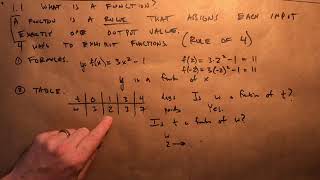 1.1 WHAT IS A FUNCTION?
A FUNCTION IS A RULE THAT ASSIGNS EACH INPUT
EXACTLY ONE OUTPUT VALUE.
4 WAYS TO EXHIBIT FUNCTIONS. (RULE OF 4)
① FORMULAS. y = f(x) = 3x² - 1 f(2) = 3·2² - 1 = 11
f(-2) = 3(-2)² - 1 = 11
y is a function of x
② TABLE.
t 0 1 3 4 days Is w a function of t?
w 3 2 3 7 Yes.
Is t a function of w?
w
2 →